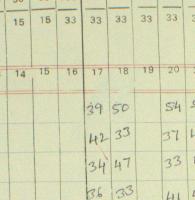 15 15 33 33 33 33 33
14 15 16 17 18 19 20
39 50 54
42 33 37
34 47 33
36 33 41